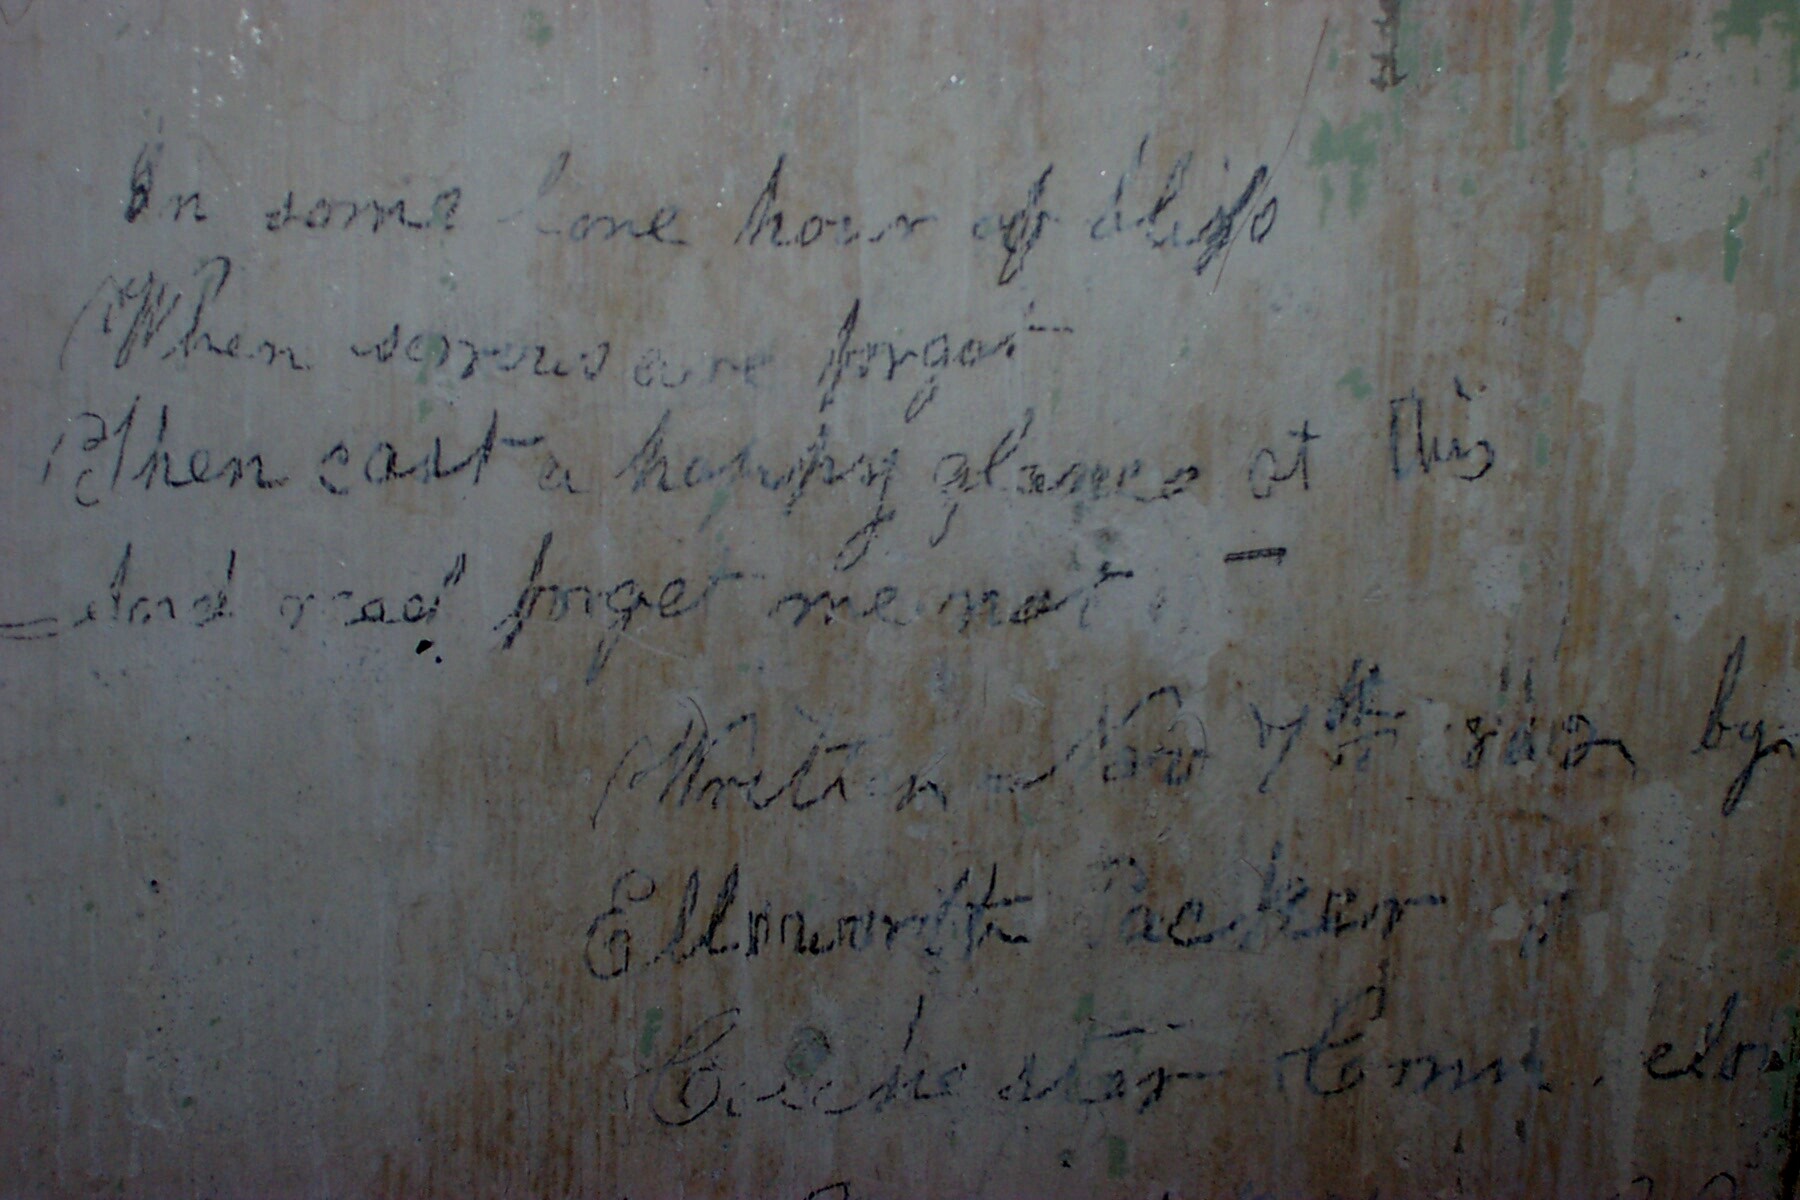 In some lone hour of bliss
When sorrows are forgot
Then cast a happy glance at this
And read forget me not
Written Nov 7th by
Ellsworth Packer
Colchester Conn.